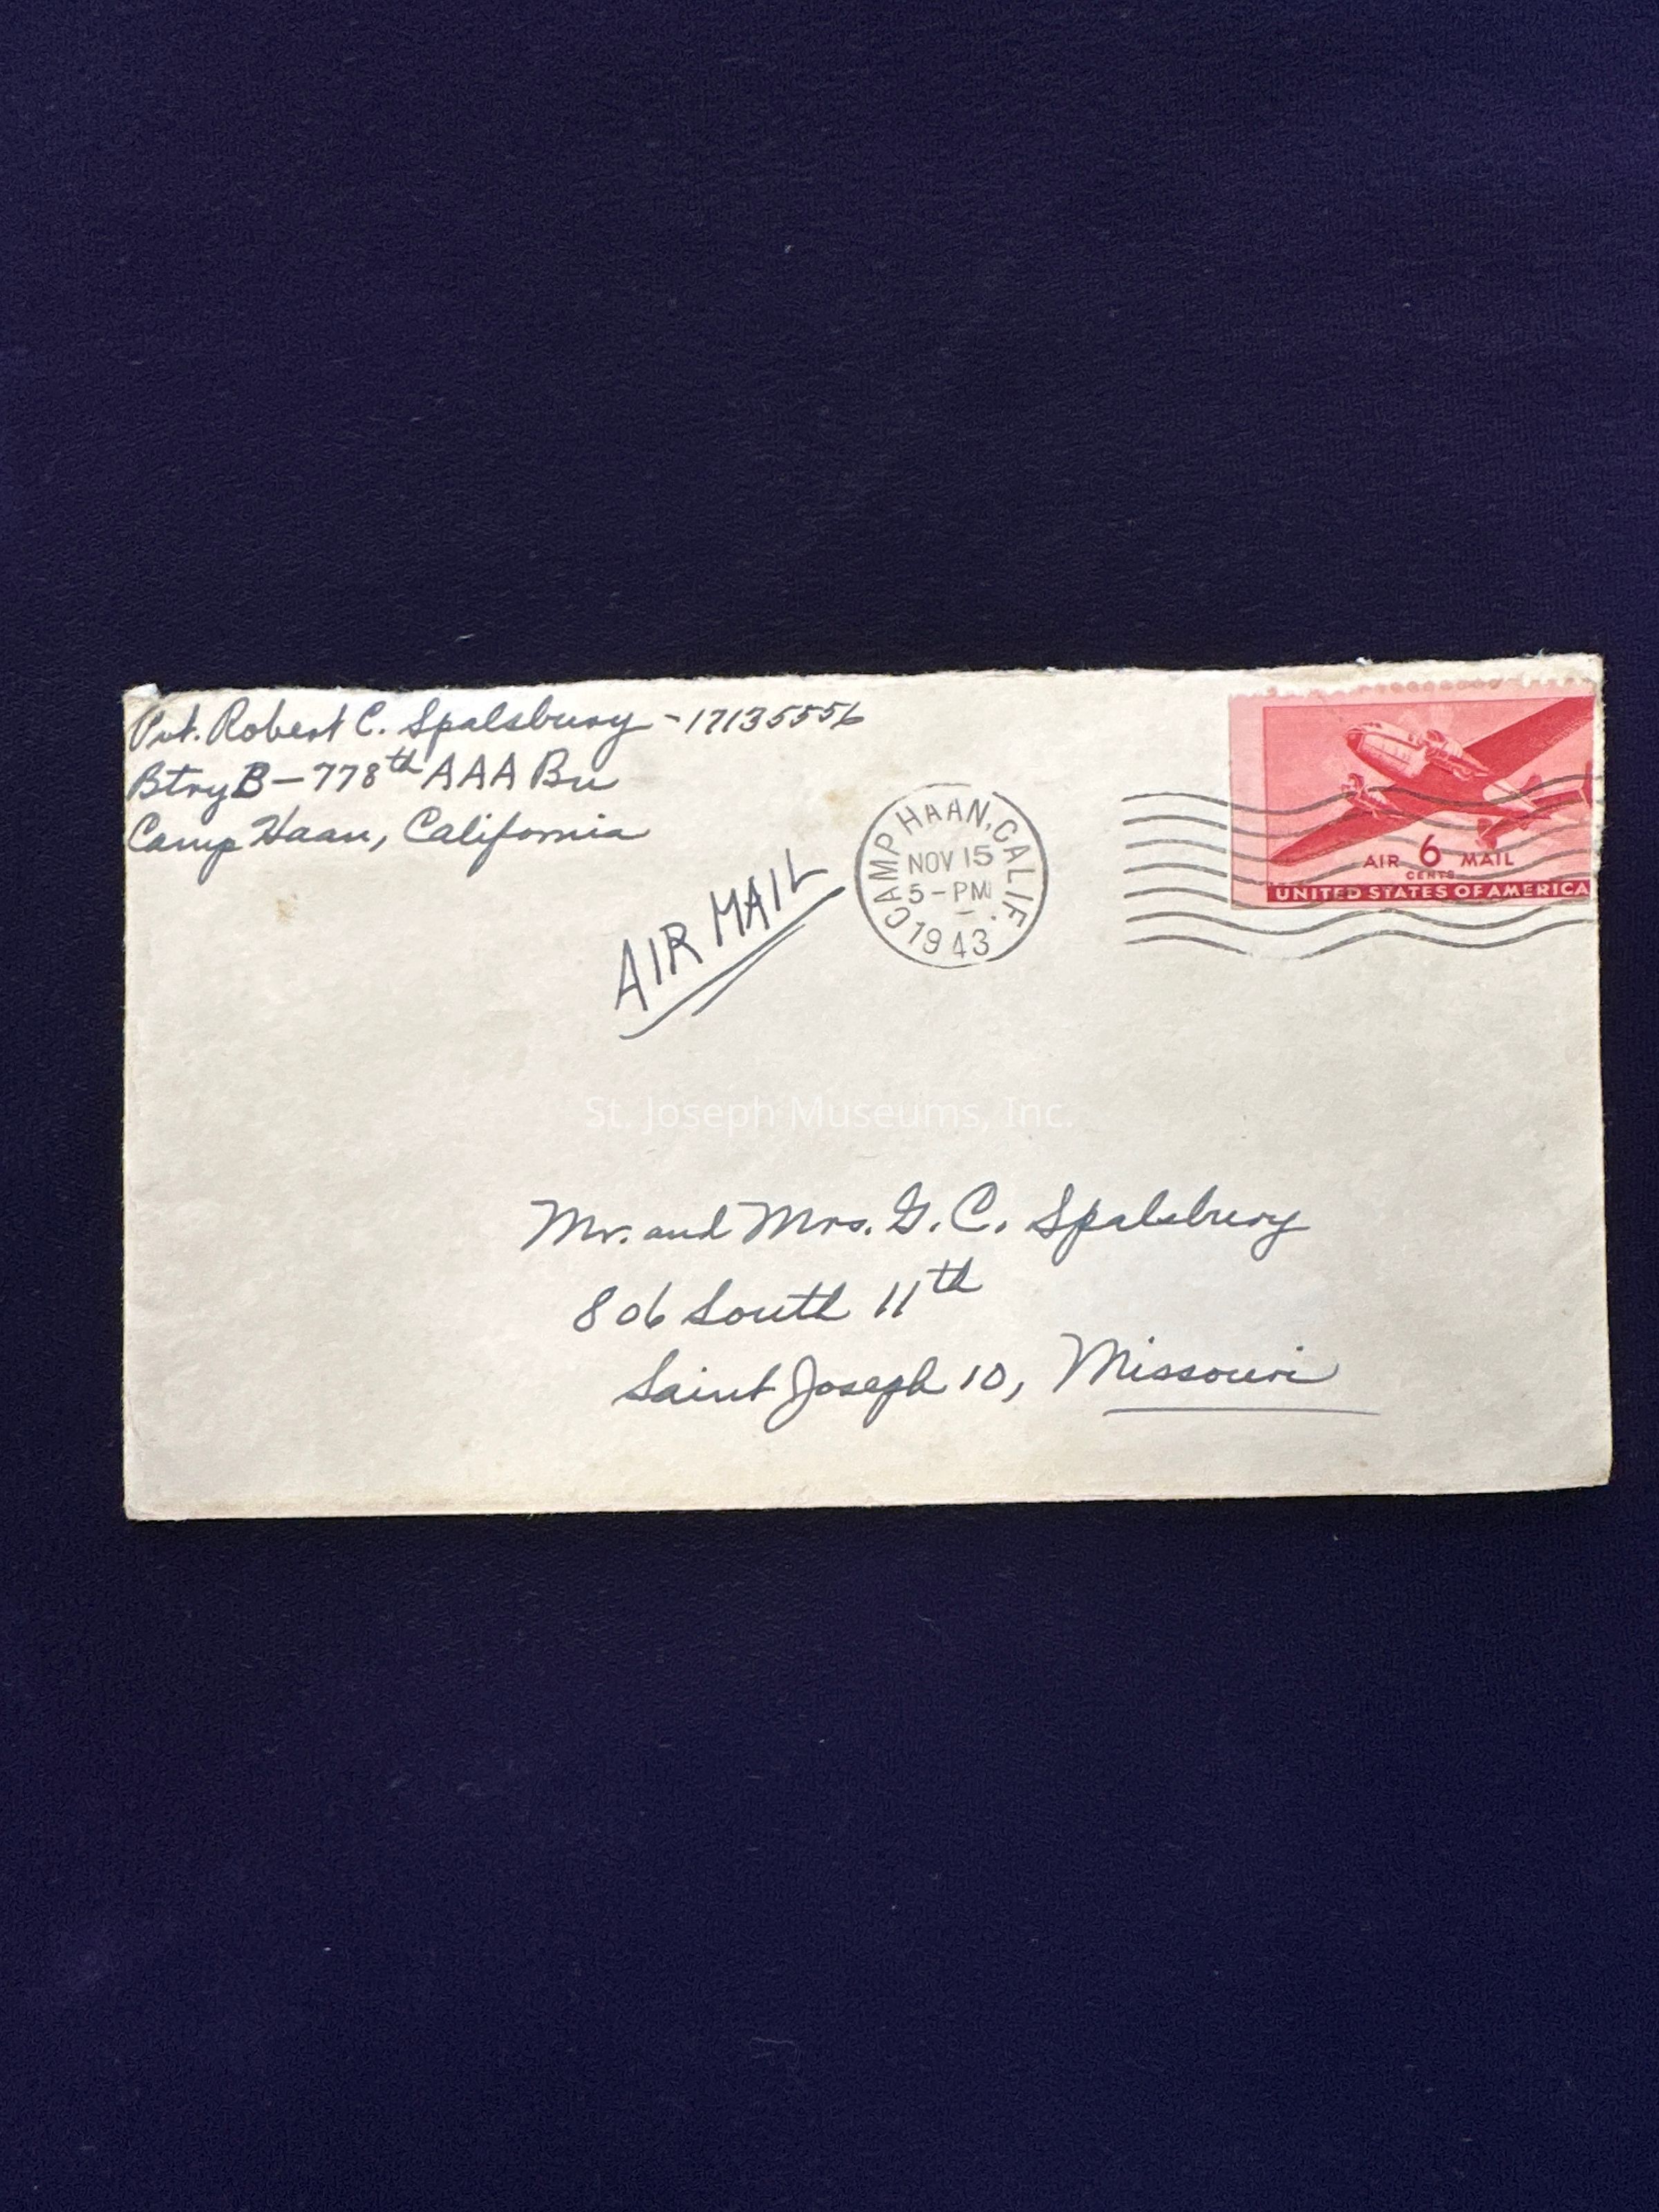 Pvt. Robert C. Spalsbury - 17135556
Btry B - 778th AAA Bn
Camp Haan, California
AIR MAIL
CAMP HAAN, CALIF.
NOV 15
5 - PM
1943
AIR 6 MAIL
CENTS
UNITED STATES OF AMERICA
St. Joseph Museums, Inc.
Mr. and Mrs. G. C. Spalsbury
806 South 11th
Saint Joseph 10, Missouri